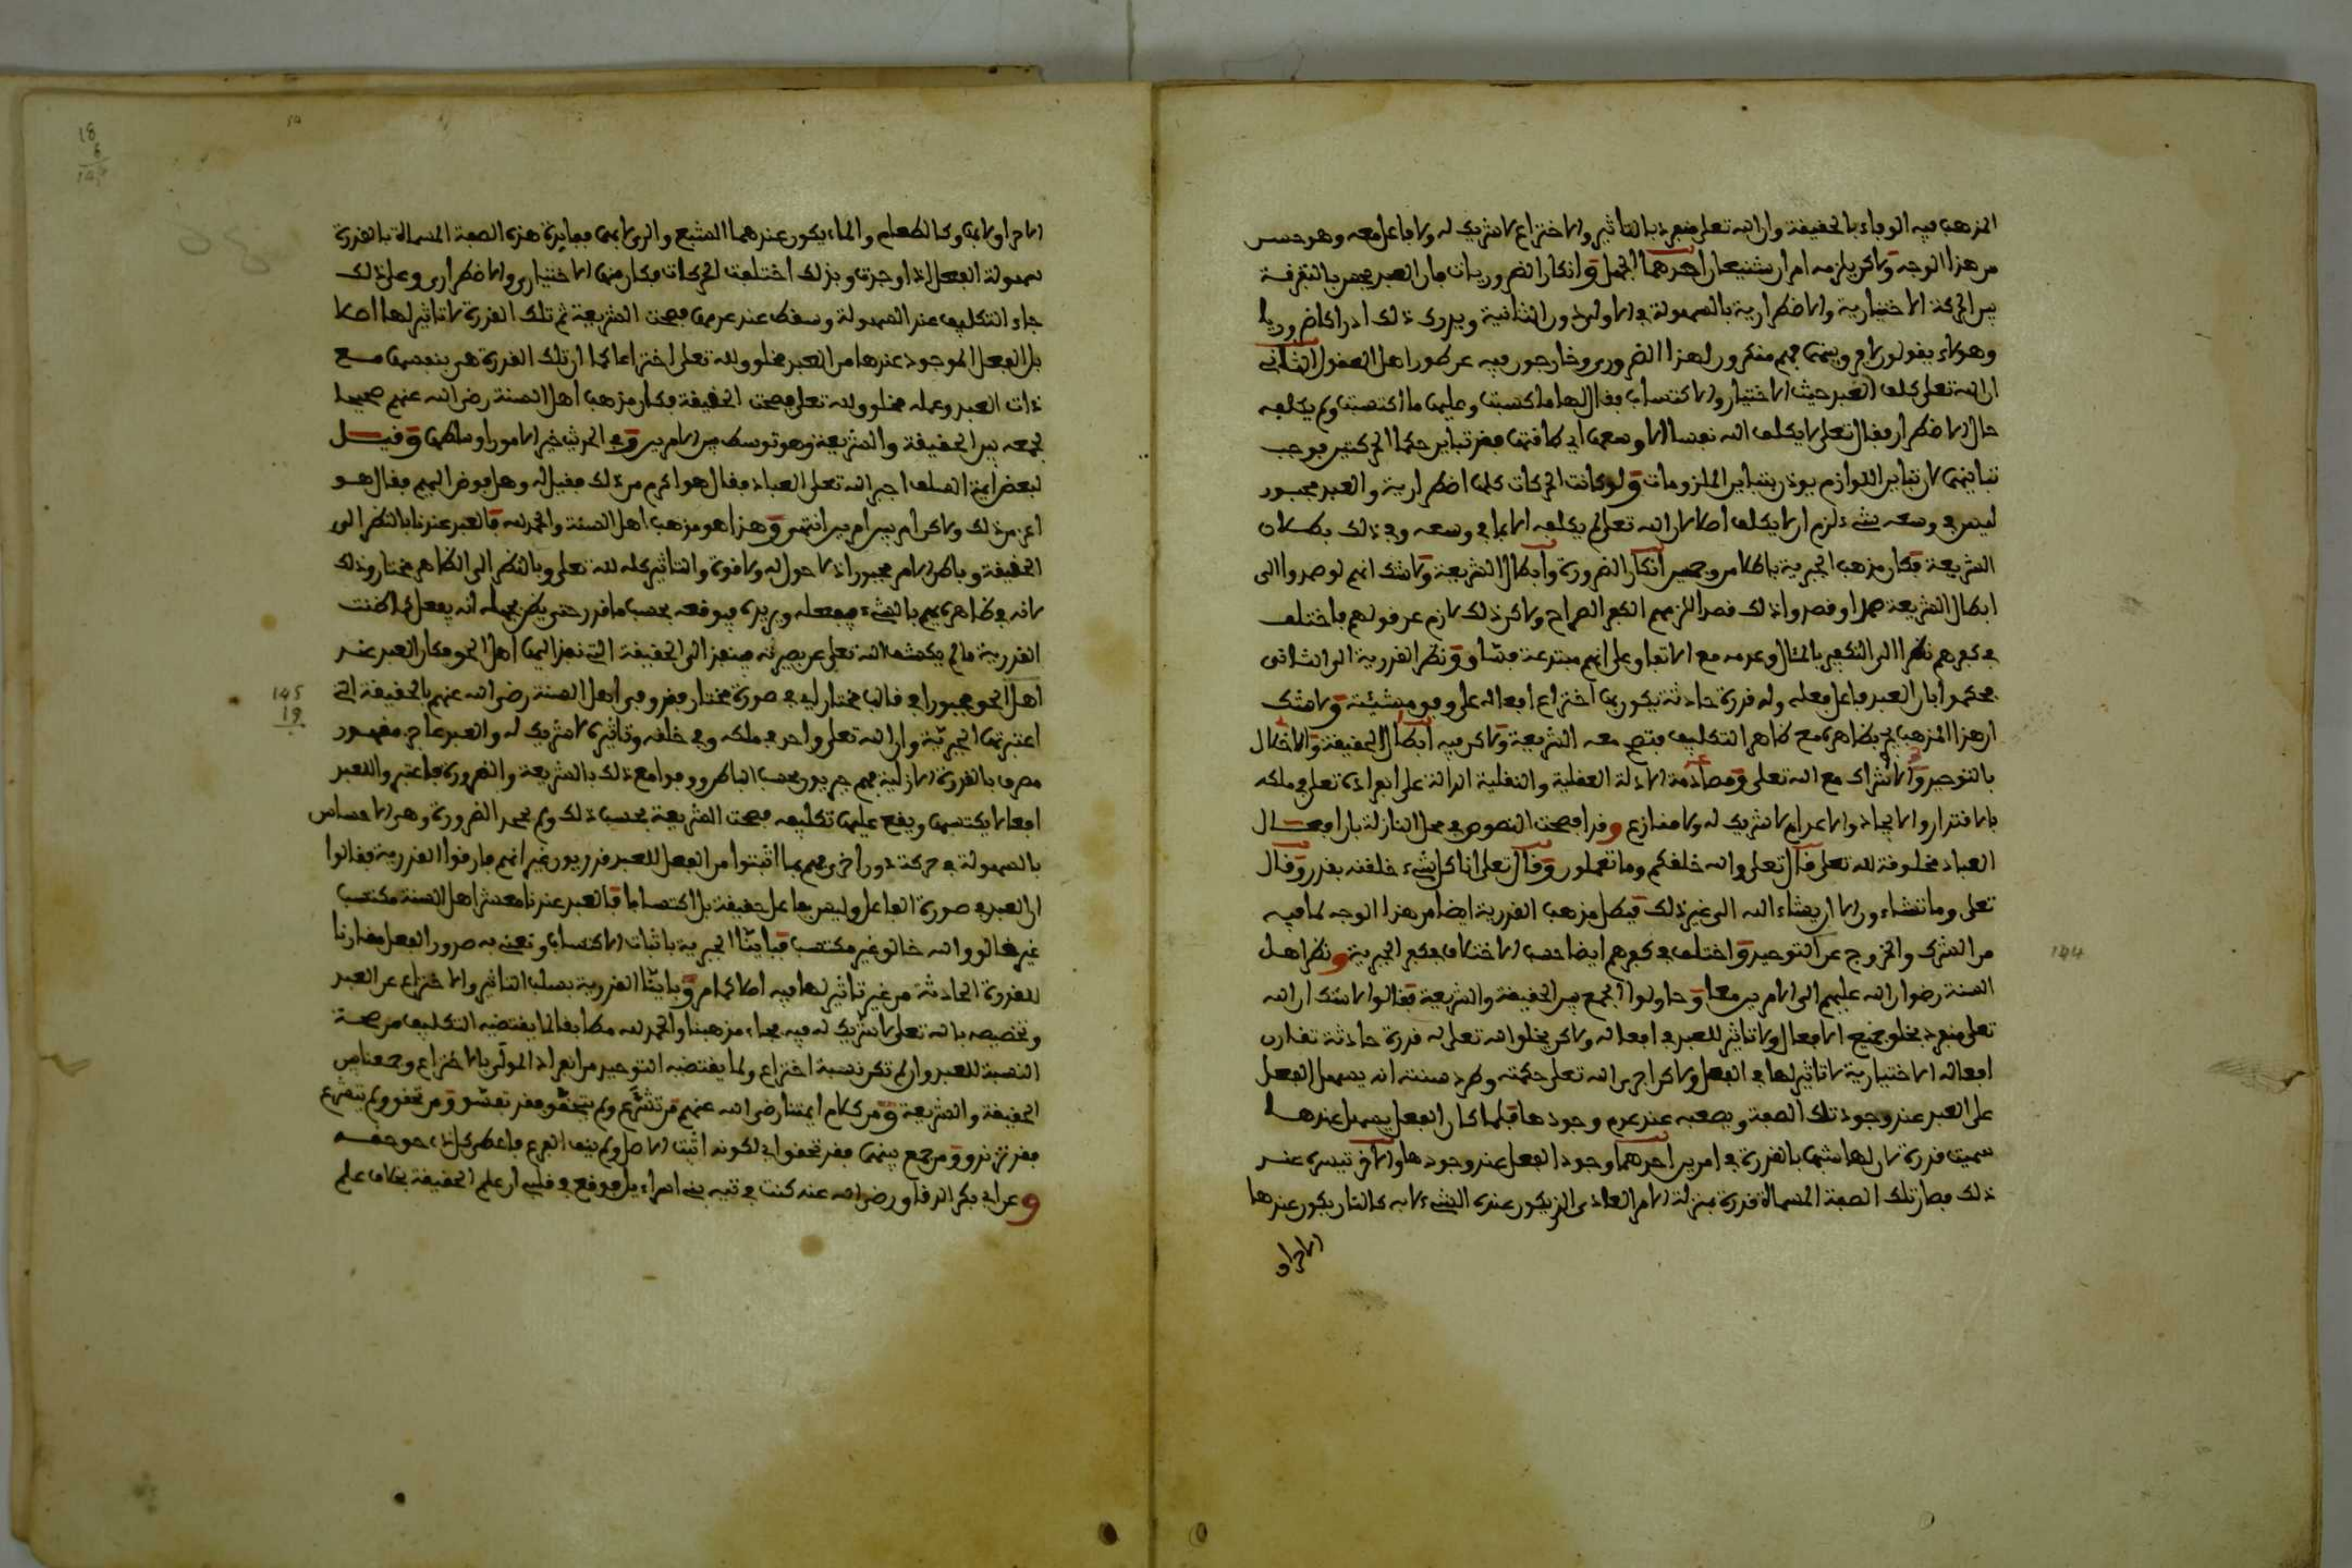 المذهب فيه الوفاء بالحقيقة وان الله تعلى منفرد بالتأثير والاختراع لا شريك له ولا فاعل معه وهو حسن
من هذا الوجه ولاكن يلزمه امران شنيعان احدهما الجهل وانكار الضروريات فان العبد يحس بالتفرقة
بين الحركة الاختيارية والاضطرارية بالسهولة في الاولى دون الثانية ويدرك ذلك ادراكا ضروريا
وهولاء يقولون لا فرق بينهما فهم منكرون لهذا الضروري وخارجون فيه عن طور اهل العقول الثاني
ان الله تعلى كلف العبد حيث الاختيار والاكتساب فقال لها ما كسبت وعليها ما اكتسبت ولم يكلفه
حال الاضطرار فقال تعلى لا يكلف الله نفسا الا وسعها اي طاقتها فقد تباين حكما الحركتين فوجب
تباينهما لان تباين اللوازم يوذن بتباين الملزومات ولو كانت الحركات كلها اضطرارية والعبد مجبور
ليس في وسعه شيء لزم ان لا يكلف اصلا لان الله تعلى لم يكلفه الا بما في وسعه وفي ذلك بطلان
الشريعة فكان مذهب الجبرية باطلا من وجهين انكار الضرورة وابطال الشريعة ولا شك انهم لو صرحوا الى
ابطال الشريعة جهرا وقصدوا ذلك قصدا للزمهم الكفر الصراح ولاكن ذلك لازم عن قولهم فاختلف
في كفرهم نظرا الى التكفير بالمآل وعدمه مع الاتفاق على انهم مبتدعة فساق ونظر القدرية الى الثاني
فحكموا بان العبد فاعل فعله وله قدرة حادثة يكون بها اختراع افعاله على وفق مشيئته ولا شك
ان هذا المذهب يجري بظاهره مع ظاهر التكليف فتصح معه الشريعة ولاكن فيه ابطال الحقيقة والاخلال
بالتوحيد والاشراك مع الله تعلى ومصادمة الادلة العقلية والنقلية الدالة على انفراده تعلى في ملكه
بالاقتدار والايجاد والاعدام لا شريك له ولا منازع وقد افصحت النصوص في محل النازلة بان افعال
العباد مخلوقة لله تعلى قال تعلى والله خلقكم وما تعملون وقال تعلى انا كل شيء خلقنه بقدر وقال
تعلى وما تشاءون الا ان يشاء الله الى غير ذلك فبطل مذهب القدرية ايضا من هذا الوجه لما فيه
من الشرك والخروج عن التوحيد واختلف في كفرهم ايضا حسب الاختلاف في كفر الجبرية ونظر اهل
السنة رضوان الله عليهم الى الامرين معا وحاولوا الجمع بين الحقيقة والشريعة فقالوا لا شك ان الله
تعلى منفرد بخلق جميع الافعال ولا تاثير للعبد في افعاله ولاكن يخلق الله تعلى له قدرة حادثة تقارن
افعاله الاختيارية لا تاثير لها في الفعل ولاكن اجرى الله تعلى حكمته وطرد سنته انه يسهل الفعل
على العبد عند وجود تلك الصفة ويصعبه عند عدم وجودها فلما كان الفعل يسهل عندها
سميت قدرة لان لها شبها بالقدرة في امرين احدهما وجود الفعل عند وجودها والاخر تيسره عند
ذلك فصارت تلك الصفة المسماة قدرة بمنزلة الامر العادي الذي يكون عنده الشيء لا به كالنار يكون عندها
الاحراق
الاحراق لا بها وكالطعام والماء يكون عندهما الشبع والري لا بهما ففايدة هذه الصفة المسماة بالقدرة
سهولة الفعل اذا وجدت وبذلك اختلفت الحركات فكان منها الاختياري والاضطراري وعلى ذلك
جاء التكليف عند السهولة وسقط عند عدمها فصحت الشريعة ثم تلك القدرة لا تاثير لها اصلا
بل الفعل الموجود عندها من العبد مخلوق لله تعلى اختراعا كما ان تلك القدرة هي بنفسها مع
ذات العبد وعمله مخلوق لله تعلى فصحت الحقيقة فكان مذهب اهل السنة رضي الله عنهم صحيحا
لجمعه بين الحقيقة والشريعة وهو توسط بين الامرين وفي الحديث خير الامور اوساطها وقيل
لبعض ايمة السلف اجبر الله تعلى العباد فقال هو اكرم من ذلك فقيل له وهل فوض اليهم فقال هو
اعز من ذلك ولاكن امر بين امرين انتهى وهذا هو مذهب اهل السنة والحمد لله فالعبد عندنا بالنظر الى
الحقيقة وباطن الامر مجبور اذ لا حول له ولا قوة والتاثير كله لله تعلى وبالنظر الى الظاهر مختار وذلك
لانه في ظاهره يهم بالشيء فيفعله ويريده فيوقعه بحسب ما قدر حتى يظن بجهله انه يفعل كما ظنت
القدرية ما لم يكشف الله تعلى عن بصيرته فينفذ الى الحقيقة التي نفذ اليها اهل الحق فكان العبد عند
اهل الحق مجبورا في قالب مختار اي في صورة مختار فقد وفى اهل السنة رضي الله عنهم بالحقيقة التي
اعتبرتها الجبرية وان الله تعلى واحد في ملكه وفي خلقه وتاثيره لا شريك له والعبد عاجز مقهور
مصرف بالقدرة الازلية فهم جبريون بحسب الباطن ووفوا مع ذلك بالشريعة والضرورة فاعتبروا للعبد
افعالا يكتسبها ويقع عليها تكليفه فصحت الشريعة بحسب ذلك ولم تجحد الضرورة وهي الاحساس
بالسهولة في حركة دون اخرى فهم بما اثبتوا من الفعل للعبد قدريون غير انهم فارقوا القدرية فقالوا
ان العبد في صورة الفاعل وليس بفاعل حقيقة بل اكتسابا فالعبد عندنا معشر اهل السنة مكتسب
غير خالق والله خالق غير مكتسب فباينا الجبرية باثبات الاكتساب ونعني به صدور الفعل مقارنا
للقدرة الحادثة من غير تاثير لها فيه اصلا كما مر وباينا القدرية بسلب التاثير والاختراع عن العبد
وتخصيصه بالله تعلى لا شريك له فيه فجاء مذهبنا والحمد لله مطابقا لما يقتضيه التكليف من صحة
النسبة للعبد وان لم تكن نسبة اختراع ولما يقتضيه التوحيد من انفراد المولى بالاختراع وجمعنا بين
الحقيقة والشريعة ومن كلام ايمتنا رضي الله عنهم من تشرع ولم يتحقق فقد تفسق ومن تحقق ولم يتشرع
فقد تزندق ومن جمع بينهما فقد تحقق اي لكونه اثبت الاصل ولم ينف الفرع فاعطى كل ذي حق حقه
وعن ابي بكر الدقاق رضي الله عنه كنت في تيه بني اسراءيل فوقع في قلبي ان علم الحقيقة بخلاف علم
144
145
19